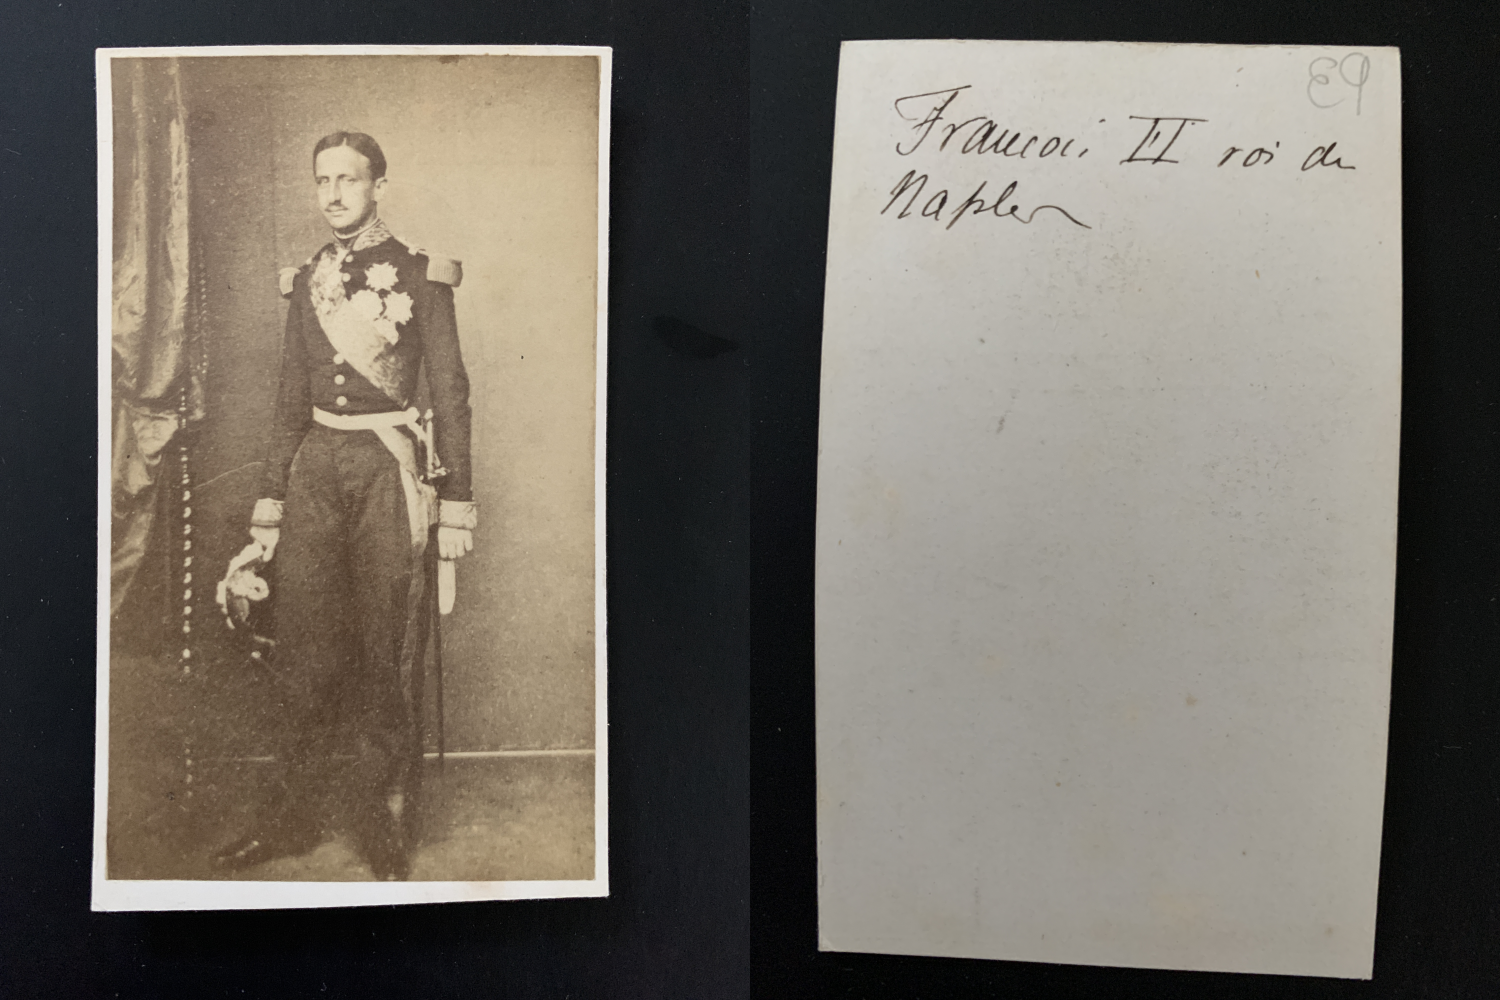 François II roi de
Naples